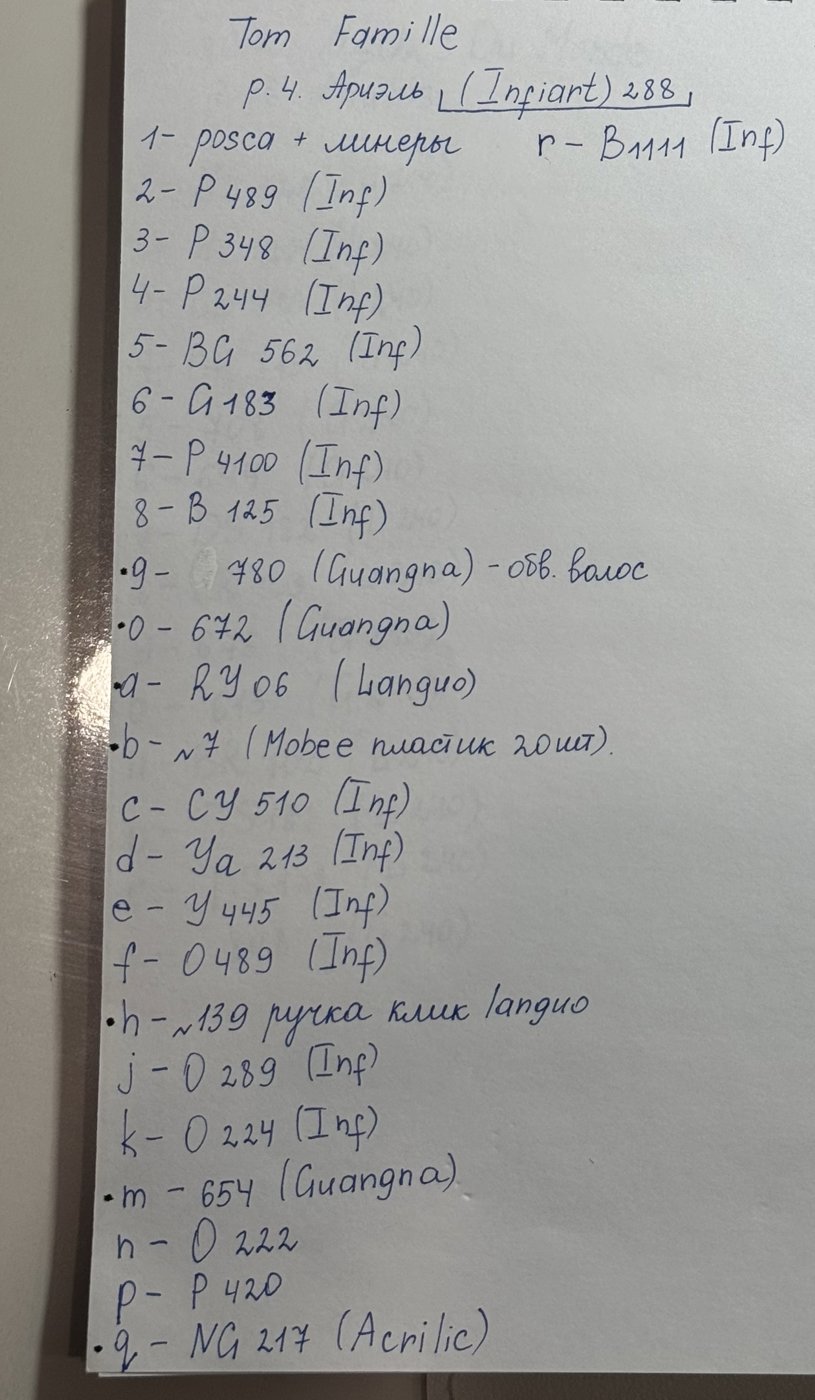 Tom Famille
р.4. Ариэль (Infiart) 288
1- posca + линеры r - B1111 (Inf)
2- P 489 (Inf)
3- P 348 (Inf)
4- P 244 (Inf)
5- BG 562 (Inf)
6- G 183 (Inf)
7- P 4100 (Inf)
8- B 125 (Inf)
•9- 780 (Guangna) - обв. волос
•0 - 672 (Guangna)
•a - RY 06 (Languo)
•b - ~7 (Mobee пластик 20шт).
c - CY 510 (Inf)
d - Ya 213 (Inf)
e - Y 445 (Inf)
f - O 489 (Inf)
•h - ~139 ручка клик languo
j - O 289 (Inf)
k - O 224 (Inf)
•m - 654 (Guangna)
n - O 222
p - P 420
•q - NG 217 (Acrilic)